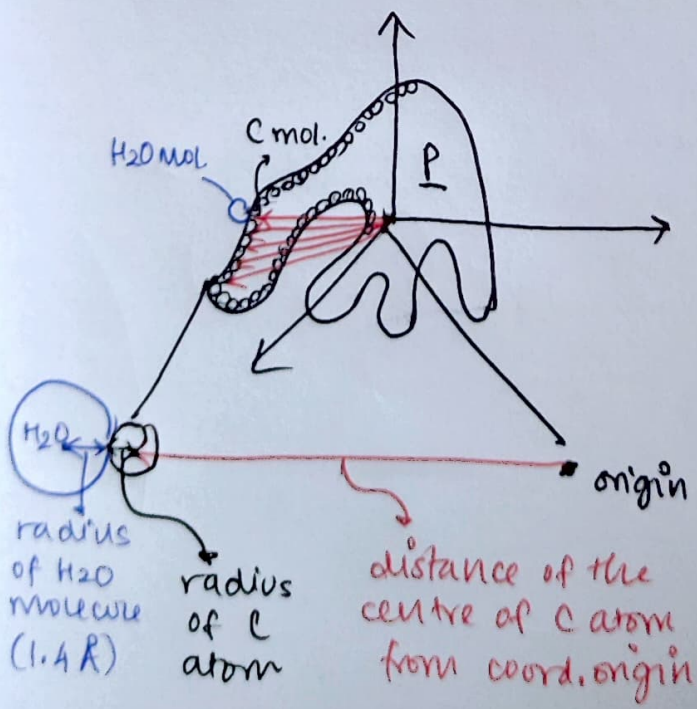 C mol.
H2O mol
P
H2O
origin
radius
of H2O
molecule
(1.4 Å)
radius
of C
atom
distance of the
centre of C atom
from coord. origin